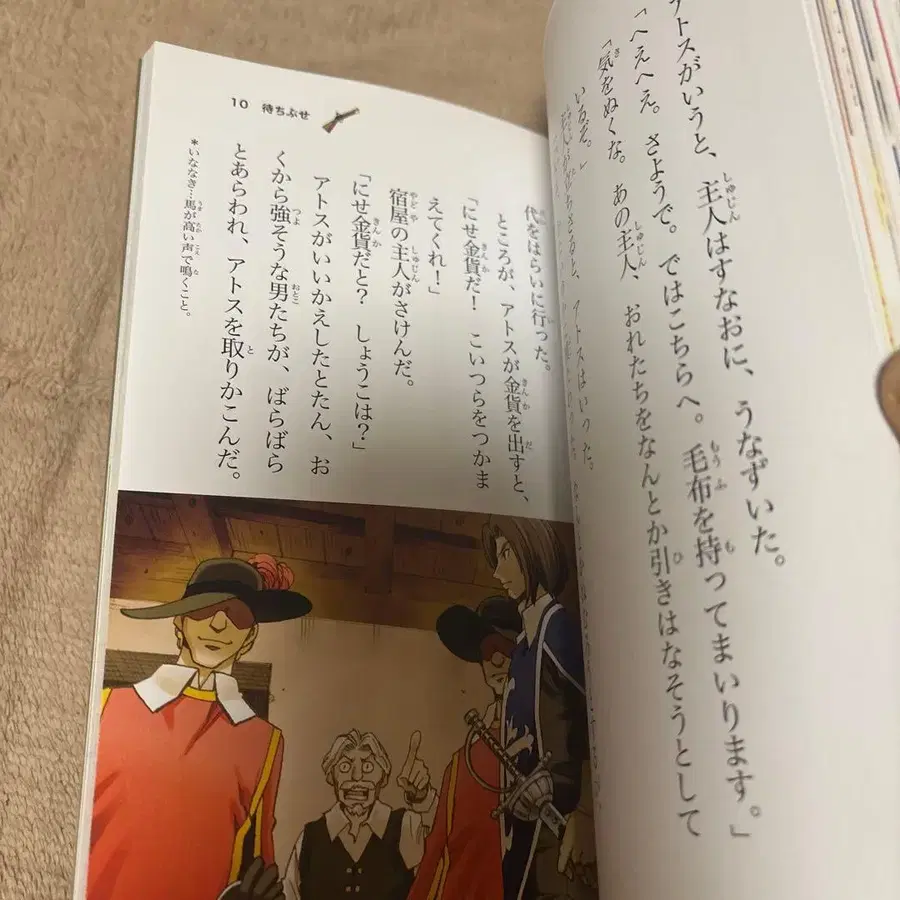 アトスがいうと、主人はすなおに、うなずいた。
「へえへえ。さようで。ではこちらへ。毛布を持ってまいります。」
「気をぬくな。あの主人、おれたちをなんとか引きはなそうとして
いるぞ。」
10 待ちぶせ
代をはらいに行った。
ところが、アトスが金貨を出すと、
「にせ金貨だ! こいつらをつかま
えてくれ!」
宿屋の主人がさけんだ。
「にせ金貨だと? しょうこは?」
アトスがいいかえしたとたん、お
くから強そうな男たちが、ばらばら
とあらわれ、アトスを取りかこんだ。
*いななき…馬が高い声で鳴くこと。